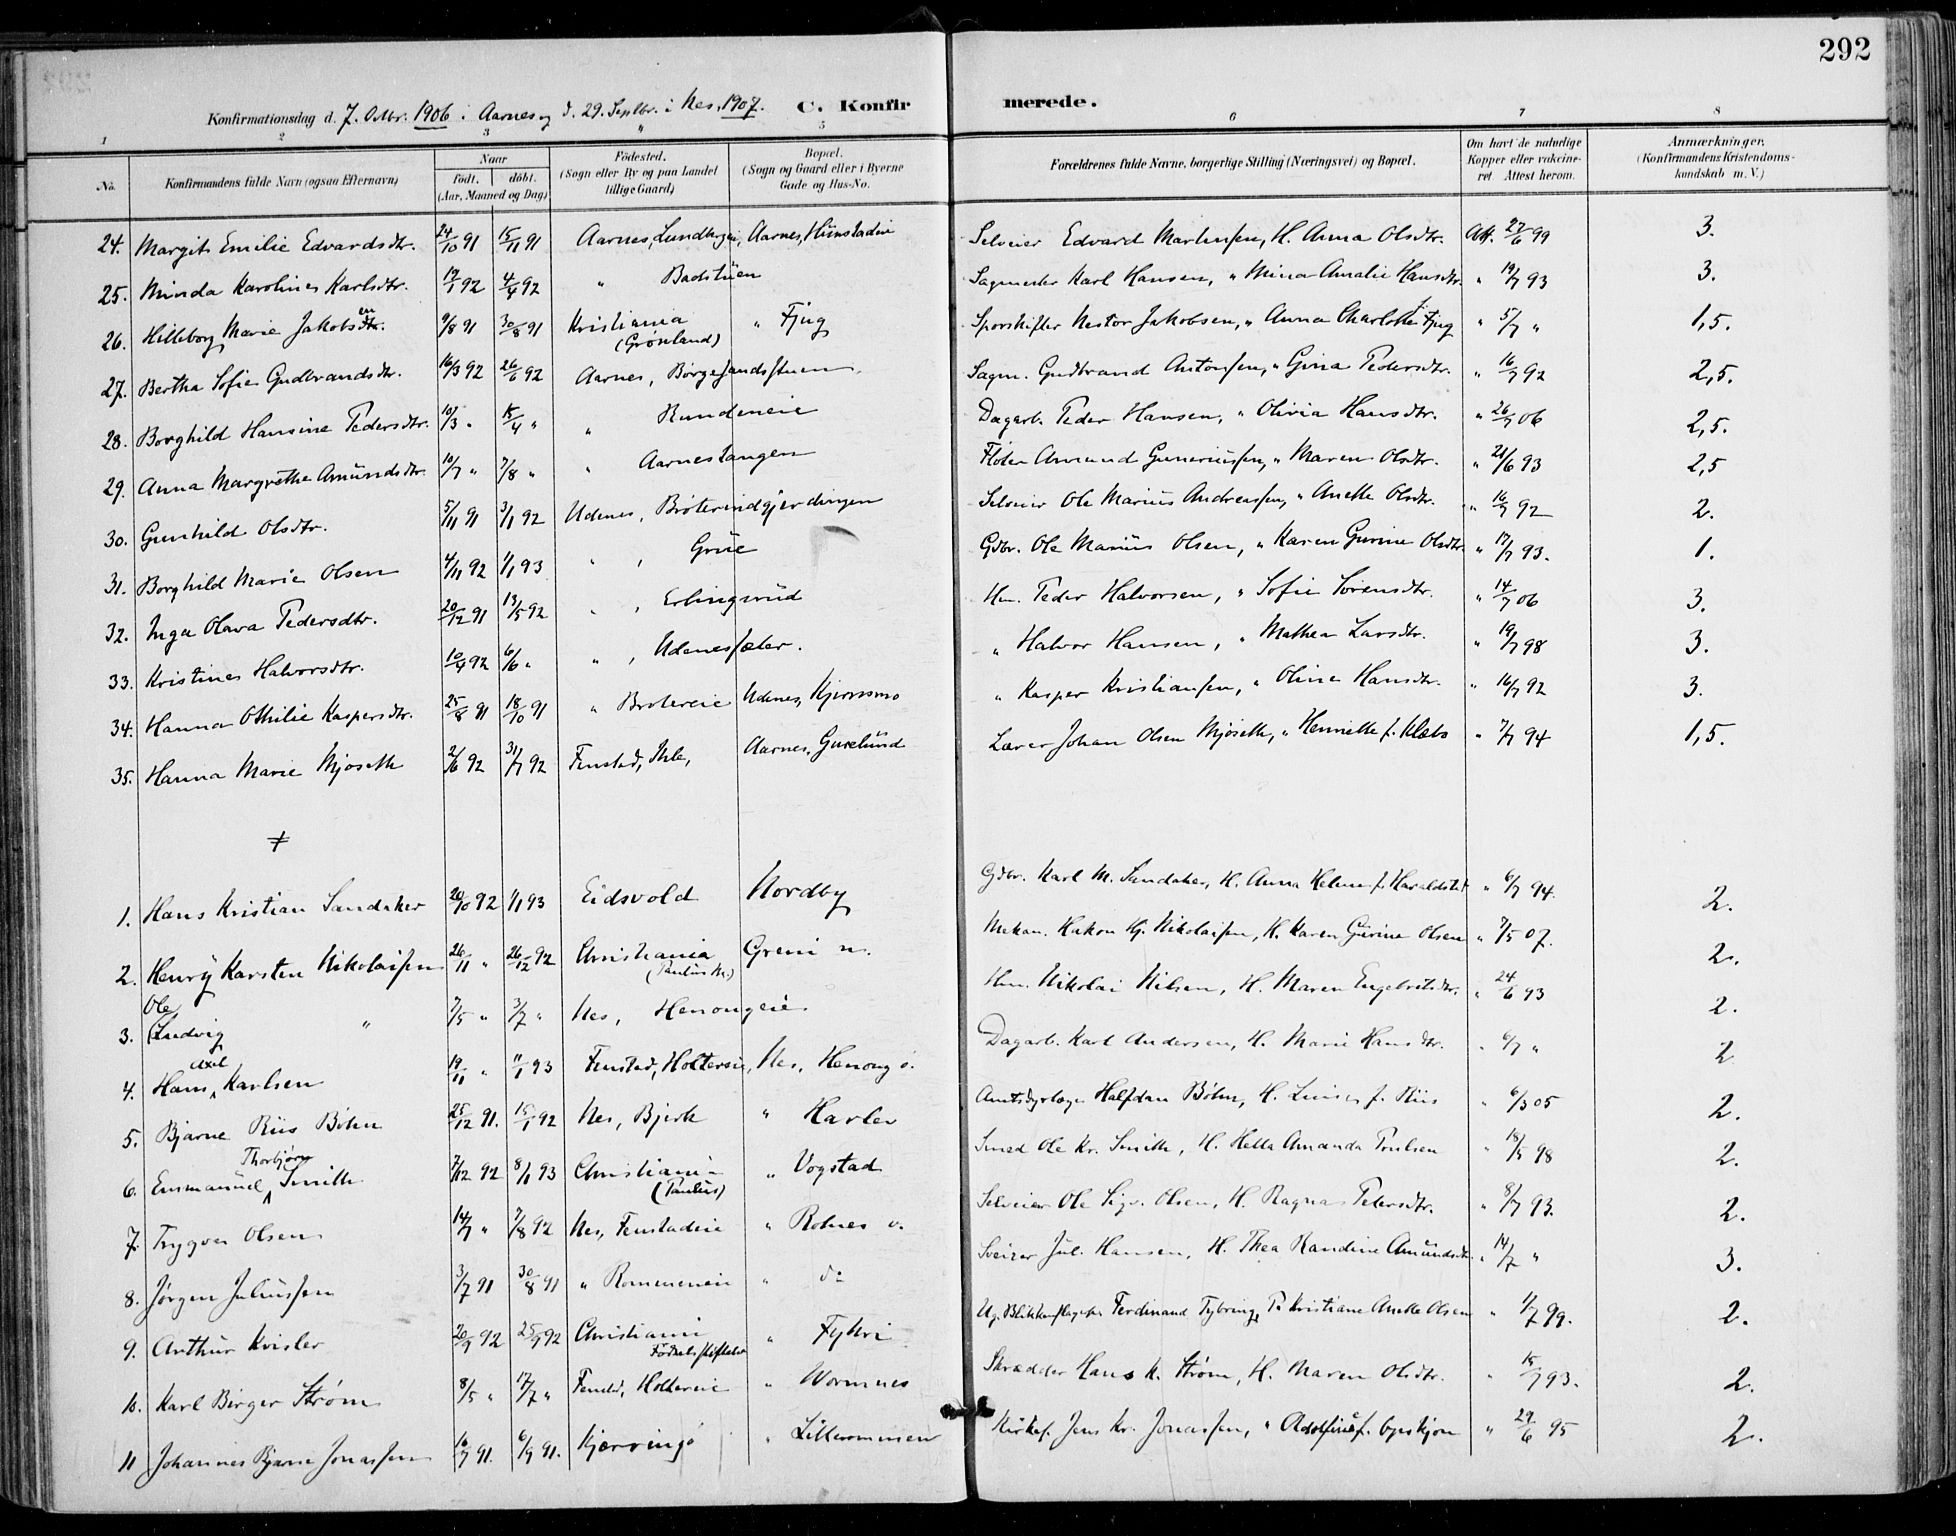 292
Konfirmationsdag d. 7. Oktbr. 1906 i Aarnes og d. 29. Septbr. i Nes, 1907. C. Konfirmerede.
1 2 3 4 5 6 7 8
No. Konfirmandens fulde Navn (ogsaa Efternavn) Naar födt. döbt. (Aar, Maaned og Dag) Födested. (Sogn eller By og paa Landet tillige Gaard) Bopæl. (Sogn og Gaard eller i Byerne Gade og Hus-No. Forældrenes fulde Navne, borgerlige Stilling (Næringsvei) og Bopæl. Om havt de naturlige Kopper eller vakcineret. Attest herom. Anmærkninger, (Konfirmandens Kristendomskundskab m. V.)
24. Margit Emilie Edvardsdtr. 24/10 91 15/11 91 Aarnes, Aarnes, Selveier Edvard Martinsen, H. Anna Olsdtr. Att. 27/6 99 3.
25. Minda Karoline Karlsdtr. 19/1 92 4/4 92 " Badstuen Sagmester Karl Hansen, " Mina Amalie Hansdtr. " 19/7 93 3.
26. Hilleborg Marie Jakobsen 9/8 91 30/8 91 Kristiania (Grønland) " Fjug Sporskifter Nestor Jakobsen, " Anna Charlotte Fjug " 5/7 " 1,5.
27. Bertha Sofie Gudbrandsdtr. 16/3 92 26/6 92 Aarnes, Børgesandstuen Sagm. Gudbrand Antonsen, " Gina Pedersdtr. " 16/7 92 2,5.
28. Borghild Hansine Pedersdtr. 10/3 " 15/4 " " Rundeneie Dagarb. Peder Hansen, " Olivia Hansdtr. " 26/7 06 2,5.
29. Anna Margrethe Amundsdtr. 10/7 " 7/8 " " Aarnestangen Fløter Amund Gunneriussen, " Maren Olsdtr. " 21/6 93 2,5
30. Gunhild Olsdtr. 5/11 91 3/1 92 Udenes, Brøterindgjerdingen Selveier Ole Marius Andreassen, " Anette Olsdtr. " 16/7 92 2.
31. Borghild Marie Olsen 4/11 92 1/1 93 " , Grue Gdbr. Ole Marius Olsen, " Karen Gurine Olsdtr. " 17/7 93. 1.
32. Inga Olava Pedersdtr. 20/12 91 13/5 92 " , Erlingsrud Hm. Peder Halvorsen, " Sofie Sørensdtr. " 14/7 06 3.
33. Kristine Halvorsdtr. 10/4 92 6/6 " " , Udenessæter. " Halvor Hansen, " Mathea Larsdtr. " 19/7 98 3.
34. Hanna Othilie Kaspersdtr. 25/8 91 18/10 91 " Brøtereie Udenes, Kjernsmo " Kasper Kristiansen, " Oline Hansdtr. " 16/7 92 3.
35. Hanna Marie Mjøseth 2/6 92 31/7 92 Fenstad, Aarnes, Gurelund Lærer Johan Olsen Mjøseth, " Henriette f. Klæbo " 7/7 94 1,5.
1. Hans Kristian Sandaker 20/10 92 1/1 93 Eidsvold Nordby Gdbr. Karl M. Sandaker, H. Anna Helene f. Haraldstad " 6/7 94. 2.
2. Henry Karsten Nikolaisen 26/11 " 26/12 92 Christiania (Paulus M.) Greni n. Mekan. Hakon Hj. Nikolaisen, H. Karen Gurine Olsen " 7/5 07. 2.
3. Ole Ludvig " 7/5 " 3/7 " Nes, Henongeie Hm. Nikolai Nilsen, H. Maren Engebretsdtr. " 24/6 93 2.
4. Hans Axel Karlsen 19/11 " 11/1 93 Fenstad, Holtereie, Nes, Henong ø. Dagarb. Karl Andersen, H. Marie Hansdtr. " 6/7 " 2
5. Bjarne Riis Böhn 25/12 91. 15/1 92 Nes, Bjerk " Karlev Amtsdyrlæge Halfdan Böhn, H. f. Riis " 6/3 05 2.
6. Emmanuel Thorbjörn Smith 7/12 92 8/1 93 Christiania (Paulus) " Vogstad Smed Ole Kr. Smith, H. Hella Amanda Poulsen " 18/5 98 2.
7. Trygve Olsen 14/7 " 7/8 92 Nes, Fenstadeie " Rolnes v. Selveier Ole Sigv. Olsen, H. Ragna Pedersdtr. " 8/7 93. 2.
8. Jörgen Juliussen 3/7 91 30/8 91 " Rommeneie " do Sveizer Jul. Hansen, H. Thea Randine Amundsdtr. " 14/7 " 3.
9. Arthur Kvisler 20/9 92 25/9 92 Christiania Fødselsstiftelsen " Fyhri Ug. Blikkenslager Ferdinand Tybring, P. Kristiane Anette Olsen " 1/7 99. 2.
10. Karl Birger Strøm 8/5 " 17/7 " Fenstad, Holtereie " Wormnes Skrædder Hans K. Strøm, H. Maren Olsdtr. " 15/7 93. 2.
11 Johannes Bjarne Jonassen 16/7 91. 6/9 91. Kjærringø " Lillerommen Kirkes. Jens Kr. Jonassen, " Adolfine f. " 29/6 95 2.